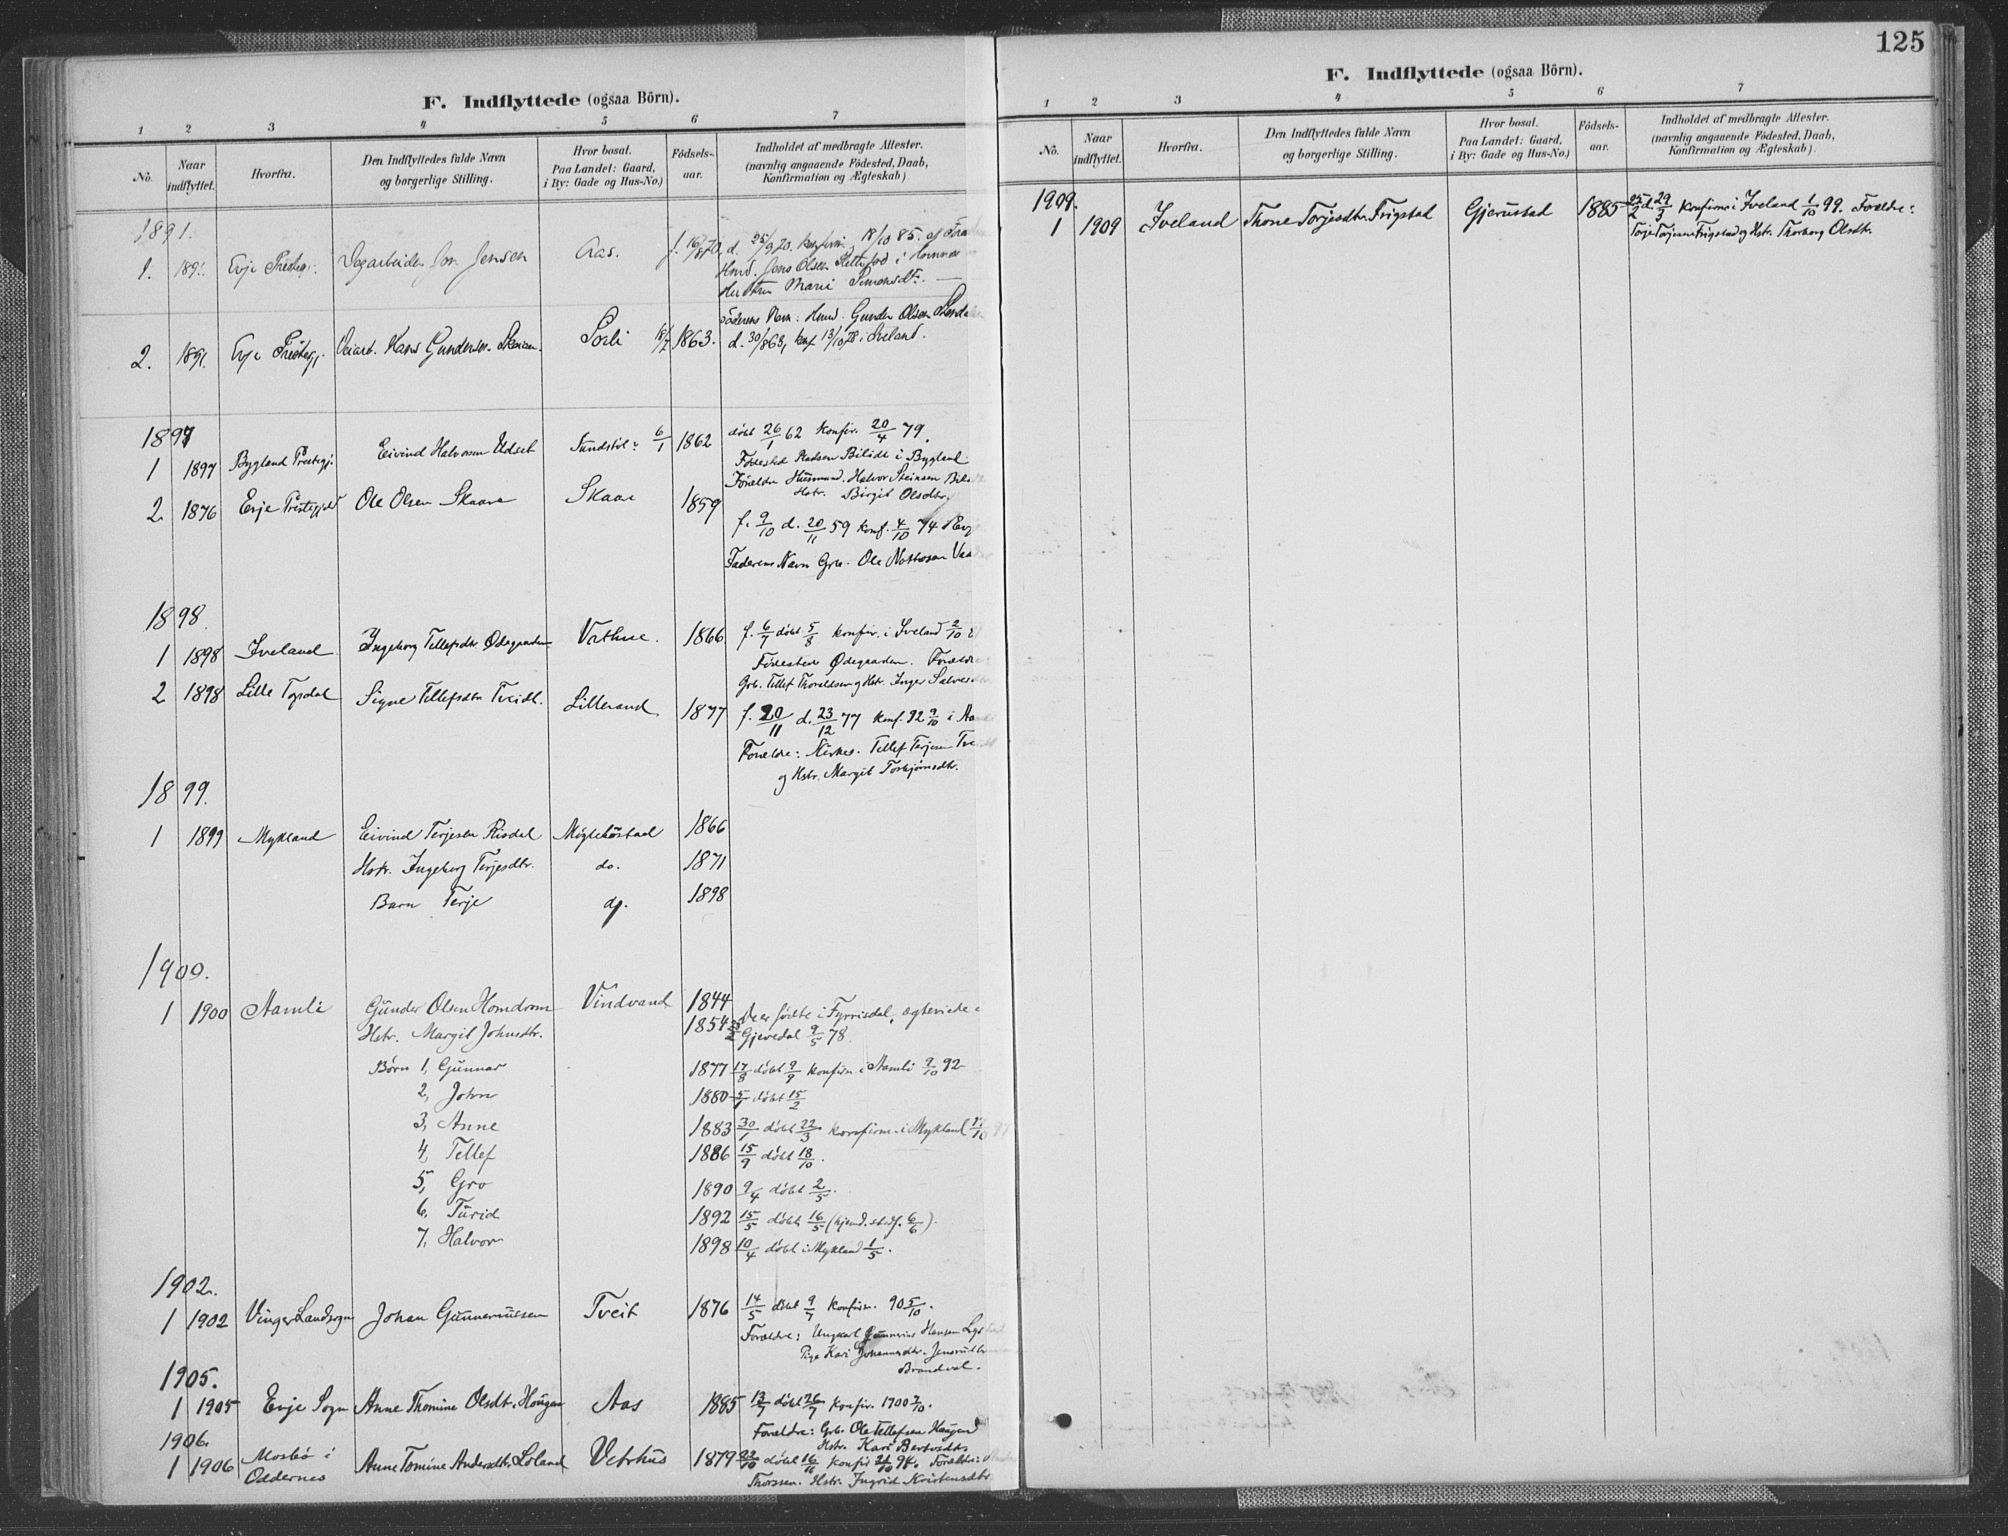 F. Indflyttede (ogsaa Börn).
1 2 3 4 5 6 7
No. Naar indflyttet. Hvorfra. Den Indflyttedes fulde Navn og borgerlige Stilling. Hvor bosat. Paa Landet: Gaard, i By: Gade og Hus-No.) Födsels-aar. Indholdet af medbragte Attester. (navnlig angaaende Födested, Daab, Konfirmation og Ægteskab)
1891.
1. 1891. Evje Prestegj. Jon Jensen Aas. f. 16/8 70, d. 25/9 70. konfirm. 18/10 85. af
Husmd. Jens Olsen i Hornnes
Marie Simonsdtr.
Faderens Navn: Husmd. Gunder Olsen
2. 1891. Evje Prestegj. Hans Gundersen Sorli 1863. d. 30/8 63, konf. 13/10 78 i Iveland.
1897
1 1897 Bygland Prestegj. Eivind Halvorsen Udset Sundstöl 6/1 1862 döbt 26/1 62 konfir. 20/4 79.
Födested Pladsen Bilidt i Bygland
Forældre Husmand Halvor Steinsen
Hstr. Birgit Olsdtr.
2. 1876 Evje Prestegjeld Ole Olsen Skaare Skaar 1859
f. 9/10 d. 20/11 59 konf. 4/10 74
Faderens Navn Grb. Ole
1898.
1 1898 Iveland Ingeborg Tellefsdtr. Ødegaarden Vathne. 1866 f. 6/7 döbt 5/8 konfir. i Iveland 2/10
Födested Ødegaarden. Forældre
Grb. Tellef Thoraldsen og Hstr. Inger
2 1898 Lille Topdal Signe Tellefsdtr. Tveidt. Lillesand 1877 f. 20/11 d. 23/12 77 konf. 92 9/10 i
Forældre: Tellef Terjesen
og Hstr. Margit Torbjörnsdtr.
1899.
1 1899 Mykland Eivind Terjesen Risdal 1866
Hstr. Ingeborg Terjesdtr. do. 1871
Barn Terje do. 1898
1900.
1 1900 Aamli Gunder Olsen Homdrom Vindvand 1844 De er födte i Fyrrisdal, ægteviede i
Hstr. Margit Johnsdtr. 1854 Gjevedal 9/5 78.
Børn 1, Gunnar 1877 17/8 döbt 9/9 konfirm. i Aamli 9/10 92
2, John 1880 5/1 döbt 15/2
3, Anne 1883 30/1 döbt 22/3 konfirm. i Mykland
4, Tellef 1886 15/9 döbt 18/10.
5, Gro 1890 9/4 döbt 2/5.
6, Turid 1892 15/5 döbt 16/5 (hjemd. stadf. 6/6).
7, Halvor 1898 10/4 döbt i Mykland 1/5.
1902.
1 1902 Vinger Landsogn Johan Gunneriussen Tveit 1876 14/5 döbt 9/7 konfirm. 90 5/10.
Forældre: Ungkarl Gunnerius Hansen
Pige Kari Johannesdtr.
Brandval.
1905.
1 1905 Evje Sogn Anne Thomine Olsdtr. Hougen Aas 1885 13/7 döbt 26/7 konfir. 1900 7/10.
Forældre: Grb. Ole Tellefsen Haugen
Hstr. Kari
1906.
1 1906 Mosbö i Anne Tomine Andersdtr. Löland Vetrhus 1879 22/10 döbt 16/11 konfir. 94. Forældre:
Oddernes Hstr. Ingrid Kristensdtr.
125
F. Indflyttede (ogsaa Börn).
1 2 3 4 5 6 7
No. Naar indflyttet. Hvorfra. Den Indflyttedes fulde Navn og borgerlige Stilling. Hvor bosat. Paa Landet: Gaard, i By: Gade og Hus-No.) Födsels-aar. Indholdet af medbragte Attester. (navnlig angaaende Födested, Daab, Konfirmation og Ægteskab).
1909.
1 1909 Iveland Thone Torjesdtr. Frigstad Gjerustad 1885 25/2 d. 29/3 konfirm. i Iveland 1/10 99. Forældre:
Torje Torjesen Frigstad og Hstr. Thorborg Olsdtr.